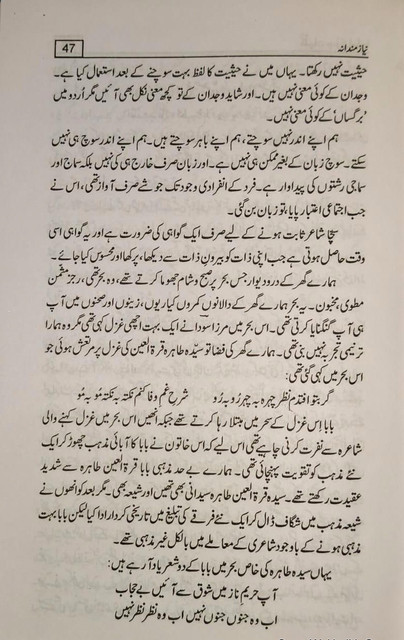 نیازمندانہ 47
حیثیت نہیں رکھتا۔ یہاں میں نے حیثیت کا لفظ بہت سوچنے کے بعد استعمال کیا ہے۔
وجدان کے کوئی معنی نہیں ہیں۔ اور شاید وجدان کے تو کچھ معنی نکل بھی آئیں مگر اُردو میں
'برگساں' کے کوئی معنی نہیں۔
ہم اپنے اندر نہیں سوچتے، ہم اپنے باہر سوچتے ہیں۔ ہم اپنے اندر سوچ ہی نہیں
سکتے۔ سوچ زبان کے بغیر ممکن ہی نہیں ہے۔ اور زبان صرف خارج ہی کی نہیں بلکہ سماج اور
سماجی رشتوں کی پیداوار ہے۔ فرد کے انفرادی وجود تک جو شے صرف آواز تھی، اس نے
جب اجتماعی اعتبار پایا، تو زبان بن گئی۔
سچا شاعر ثابت ہونے کے لیے صرف ایک گواہی کی ضرورت ہے اور یہ گواہی اسی
وقت حاصل ہوتی ہے جب اپنی ذات کو بیرونِ ذات سے دیکھا، پرکھا اور محسوس کیا جائے۔
ہمارے گھر کے درودیوار جس بحر پر صبح و شام جھوما کرتے تھے، وہ بحر تھی، رجز مثمن
مطوی مخبون۔ یہ بحر ہمارے گھر کے دالانوں کمروں کیاریوں، زینوں اور صحنوں میں آپ
ہی آپ گنگنایا کرتی تھی۔ اس بحر میں مرزا سودا نے ایک بہت اچھی غزل کہی تھی مگر وہ ہمارا
ترنیمی تجربہ نہیں بنی تھی۔ ہمارے گھر کی فضا تو سیّدہ طاہرہ قرۃ العین کی غزل پر مرتعش ہوئی جو
اس بحر میں کہی گئی تھی:
گر بتو افتدم نظر چہرہ بہ چہرہ رُو بہ رُو شرحِ غمِ وفا کنم نکتہ بہ نکتہ مُو بہ مُو
بابا اس غزل کے سحر میں مبتلا رہا کرتے تھے جبکہ انھیں اس بحر میں غزل کہنے والی
شاعرہ سے نفرت کرنی چاہیے تھی اس لیے کہ اس خاتون نے بابا کا آبائی مذہب چھوڑ کر ایک
نئے مذہب کو تقویت پہنچائی تھی۔ ہمارے بے حد مذہبی بابا قرۃ العین طاہرہ سے شدید
عقیدت رکھتے تھے۔ سیّدہ قرۃ العین طاہرہ سیدانی بھی تھیں اور شیعہ بھی۔ مگر بعد کو انھوں نے
شیعہ مذہب میں شگاف ڈال کر ایک نئے فرقے کی تبلیغ میں تاریخی کردار ادا کیا لیکن بابا بہت
مذہبی ہونے کے باوجود شاعری کے معاملے میں بالکل غیر مذہبی تھے۔
یہاں سیّدہ طاہرہ کی خاص بحر میں بابا کے دو شعر یاد آ رہے ہیں:
آپ حریمِ ناز میں شوق سے آئیں بے حجاب
اب وہ جنوں جنوں نہیں اب وہ نظر نظر نہیں